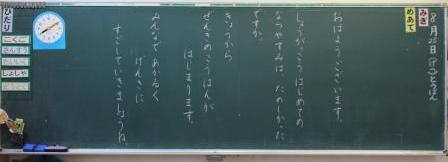 みぎ
めあて
月 日
おはようございます。
しょうがっこうはじめての
なつやすみは、たのしかった
ですか。
きょうから
ぜんきのこうはんが
はじまります。
みんなであかるく
げんきに
すごしていきましょうね。
ひだり
こくご
さんすう
しょしゃ